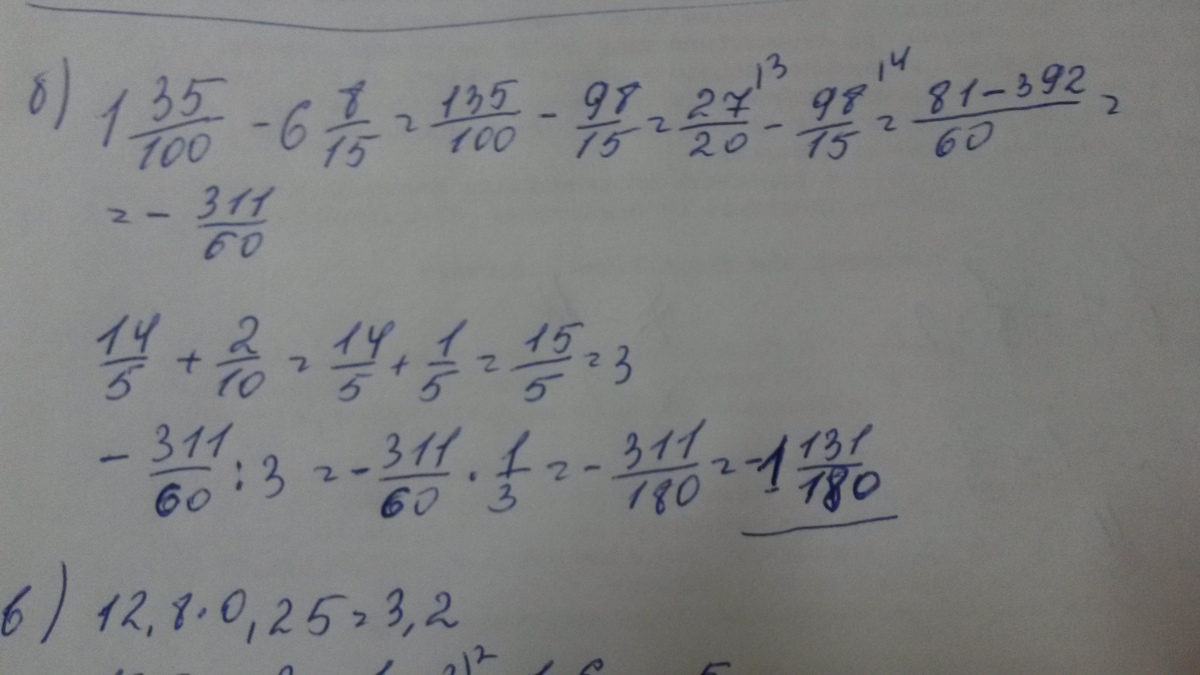 б) 1 35/100 - 6 8/15 = 135/100 - 98/15 = 27/20 |3 - 98/15 |4 = 81-392/60 =
= - 311/60
14/5 + 2/10 = 14/5 + 1/5 = 15/5 = 3
- 311/60 : 3 = - 311/60 · 1/3 = - 311/180 = -1 131/180
в) 12,8·0,25=3,2